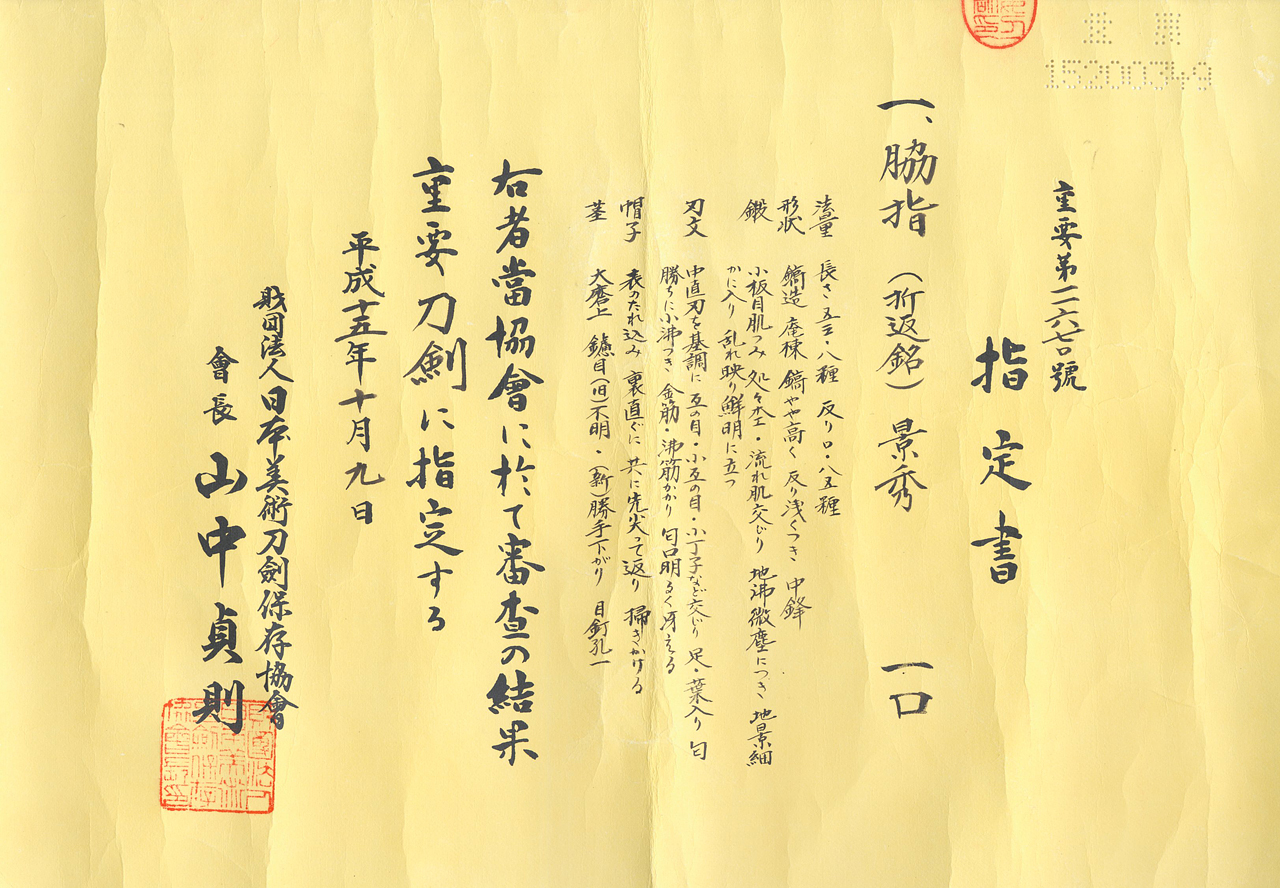 重要
15200349
重要第一一六七〇號
指定書
一、脇指 (折返銘) 景秀 一口
法量 長さ 五三・八糎 反り〇・八五糎
形状 鎬造 庵棟 鎬やや高く 反り浅くつき 中鋒
鍛 小板目肌つみ 処々杢・流れ肌交じり 地沸微塵につき 地景細
かに入り 乱れ映り鮮明に立つ
刃文 中直刃を基調に 互の目・小互の目・小丁子など交じり 足・葉入り 匂
勝ちに小沸つき 金筋・沸筋かかり 匂口明るく冴える
帽子 表のたれ込み 裏直ぐに 共に先尖って返り 掃きかける
茎 大磨上 鑢目(旧)不明・(新)勝手下がり 目釘孔一
右者當協會に於て審査の結果
重要刀剣に指定する
平成十五年十月九日
財団法人日本美術刀劍保存協會
會長 山中貞則